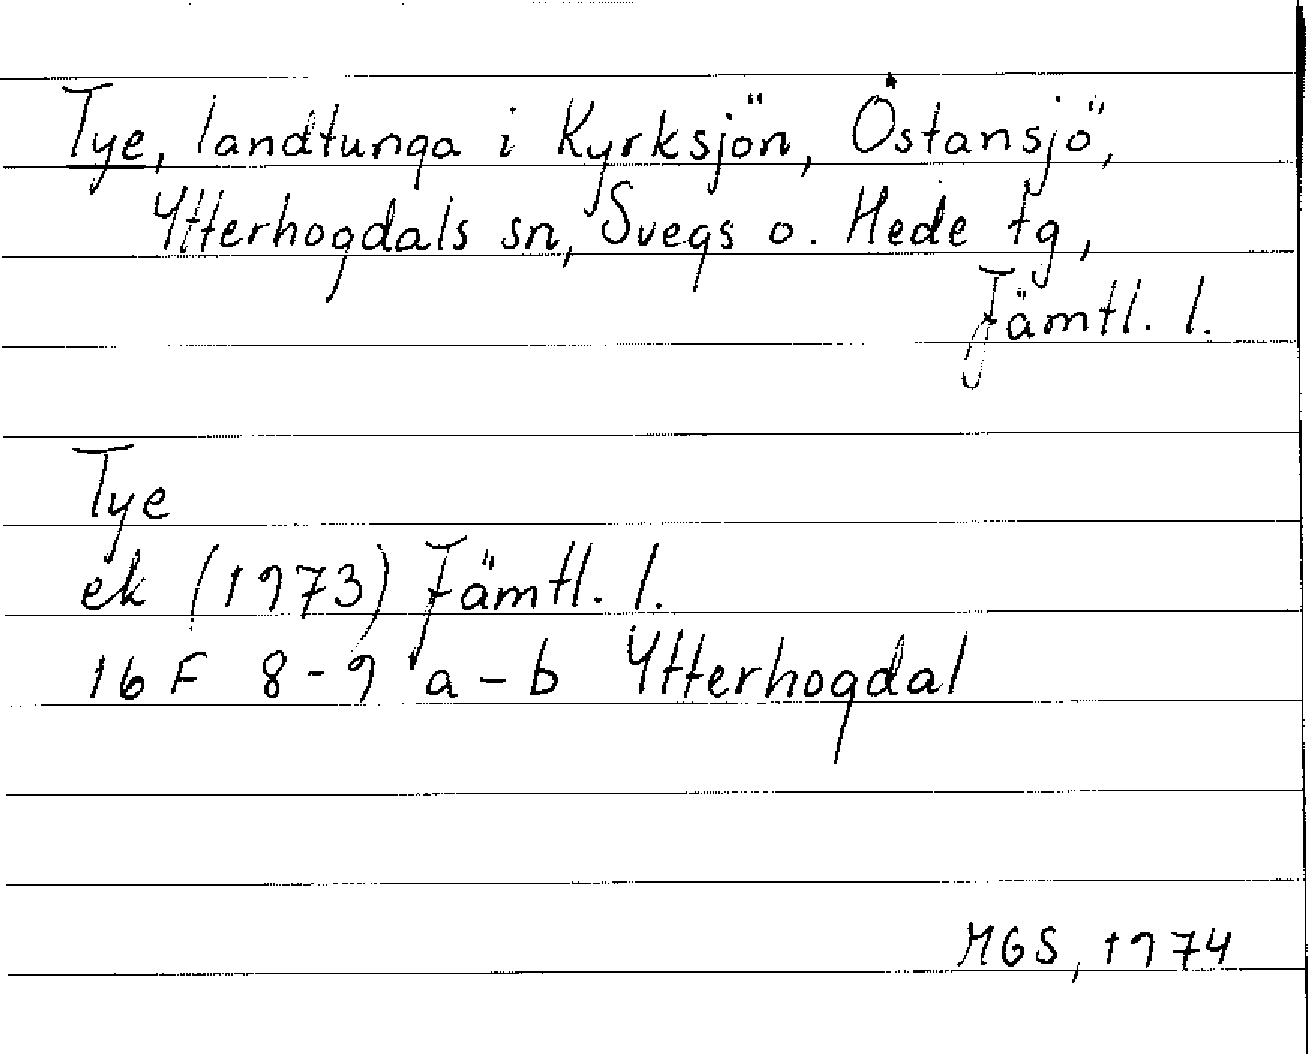 Tye, landtunga i Kyrksjön, Östansjö,
Ytterhogdals sn, Svegs o. Hede tg,
Jämtl. l.
Tye
ek (1973) Jämtl. l.
16 F 8-9 a-b Ytterhogdal
MGS, 1974